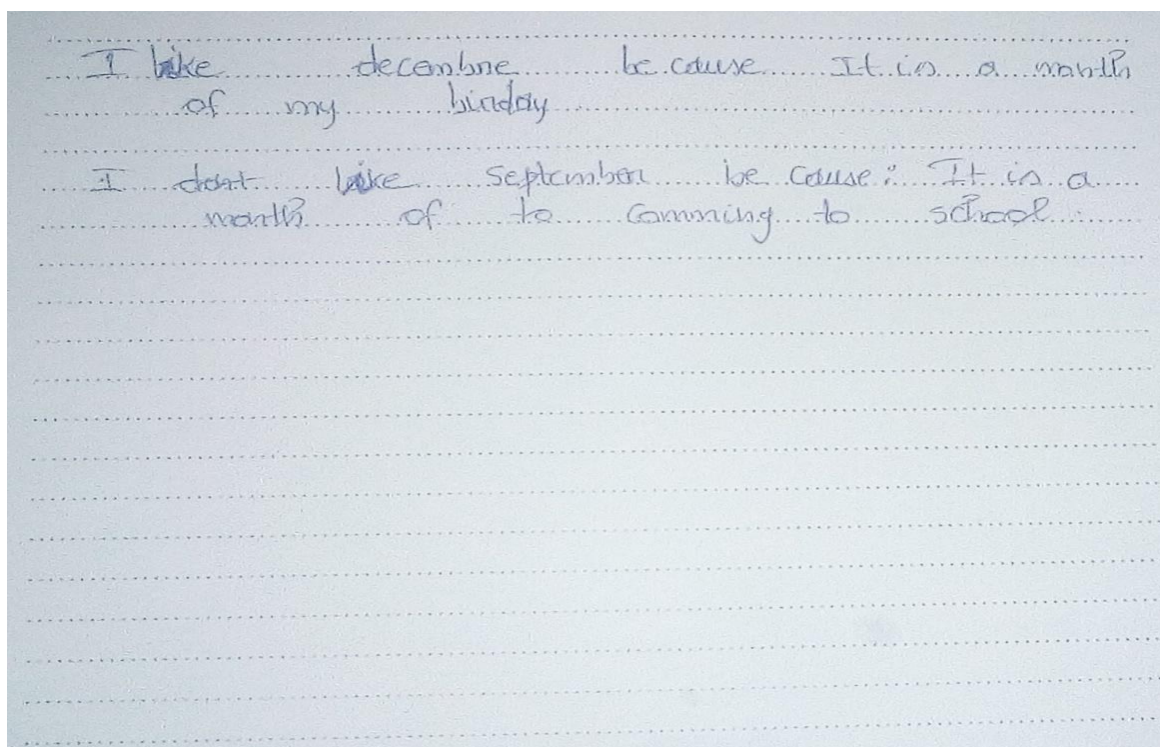 I like decembre be cause It is a month
of my birday
I dont like September be cause: It is a
month of to comming to school.